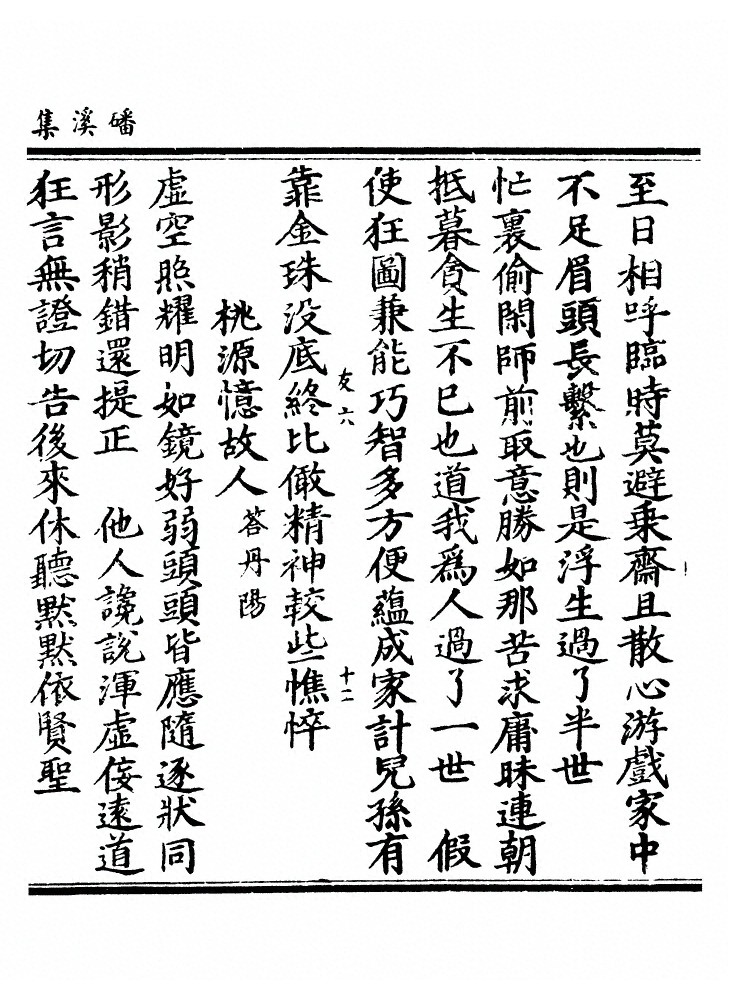 磻溪集
至日相呼臨時莫避乗齋且散心游戲家中
不足眉頭長繫也則是浮生過了半世
忙裏偷閑師前取意勝如那苦求庸昧連朝
抵暮貪生不巳也道我為人過了一世　假
使狂圖兼能巧智多方便蘊成家計兒孫有
友六
十二
靠金珠没底終比倣精神較些憔悴
桃源憶故人 荅丹陽
虛空照耀明如鏡好弱頭頭皆應隨逐狀同
形影稍錯還提正　他人讒說渾虛侫遠道
狂言無證切告後來休聽黙黙依賢聖